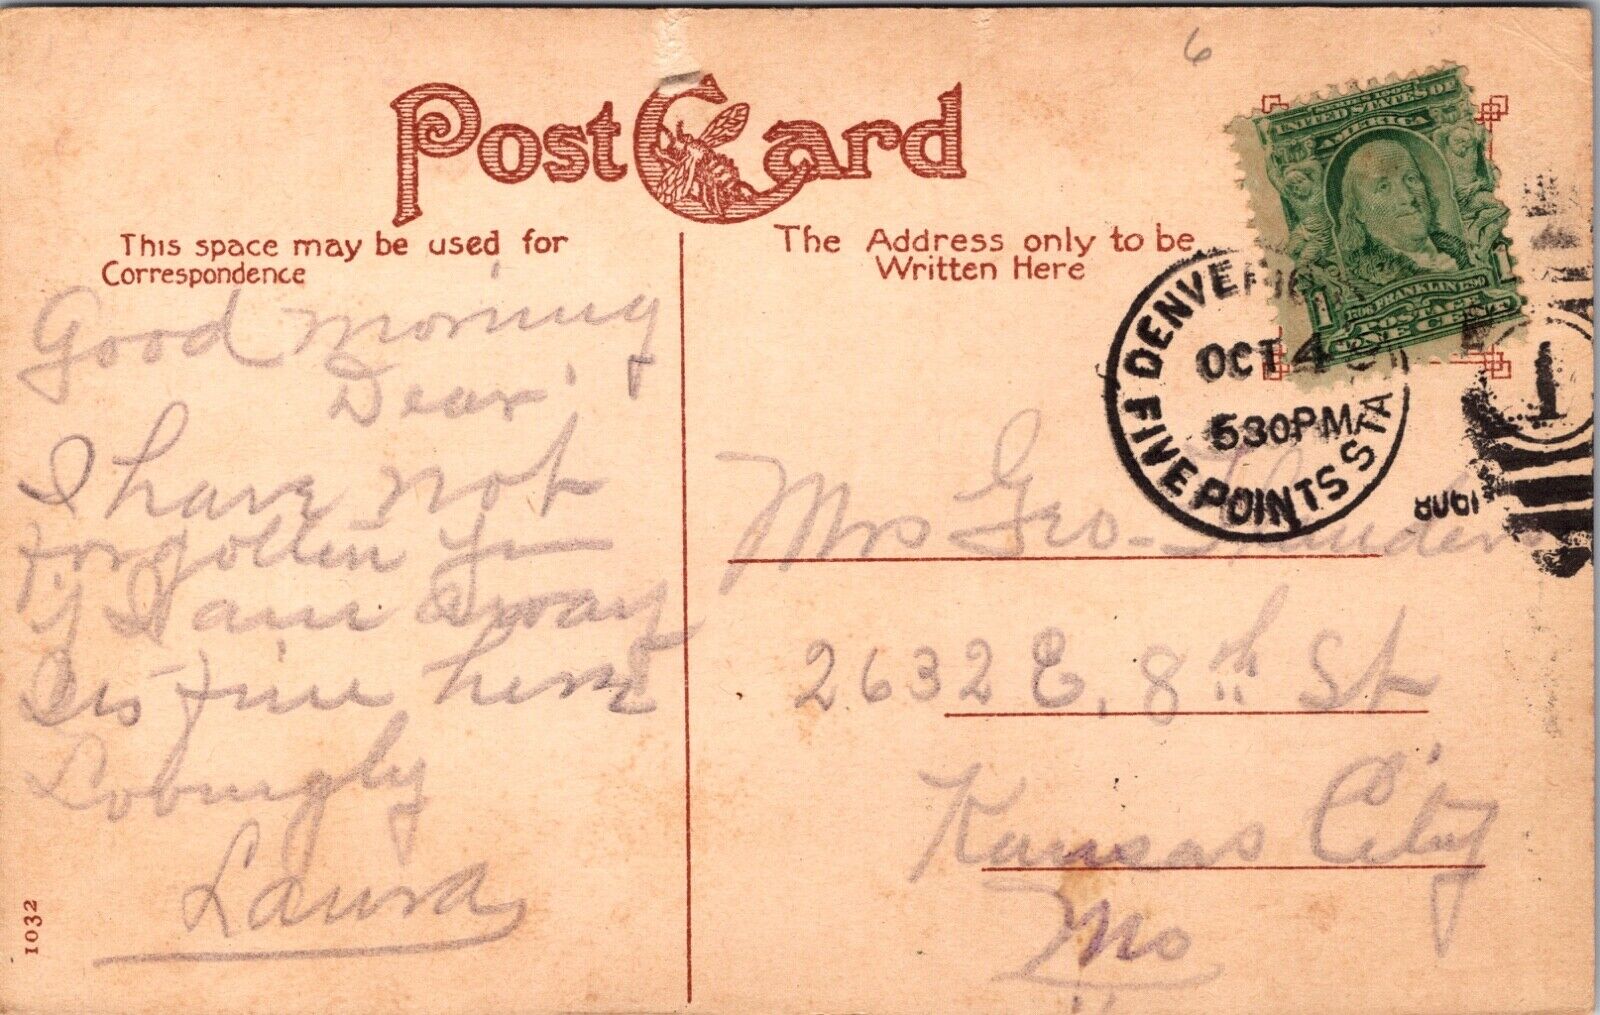 6
Post Card
This space may be used for
Correspondence
The Address only to be
Written Here
SERIES 1902
UNITED STATES OF
AMERICA
1706 FRANKLIN 1790
POSTAGE
1 ONE CENT 1
DENVER
OCT 4
530PM
FIVE POINTS STA
1
1908
Good morning
Dear,
I have not
forgotten you
if I am away
Its fine here
Lovingly
Laura
Mrs Geo.
2632 E. 8th St
Kansas City
Mo
1032